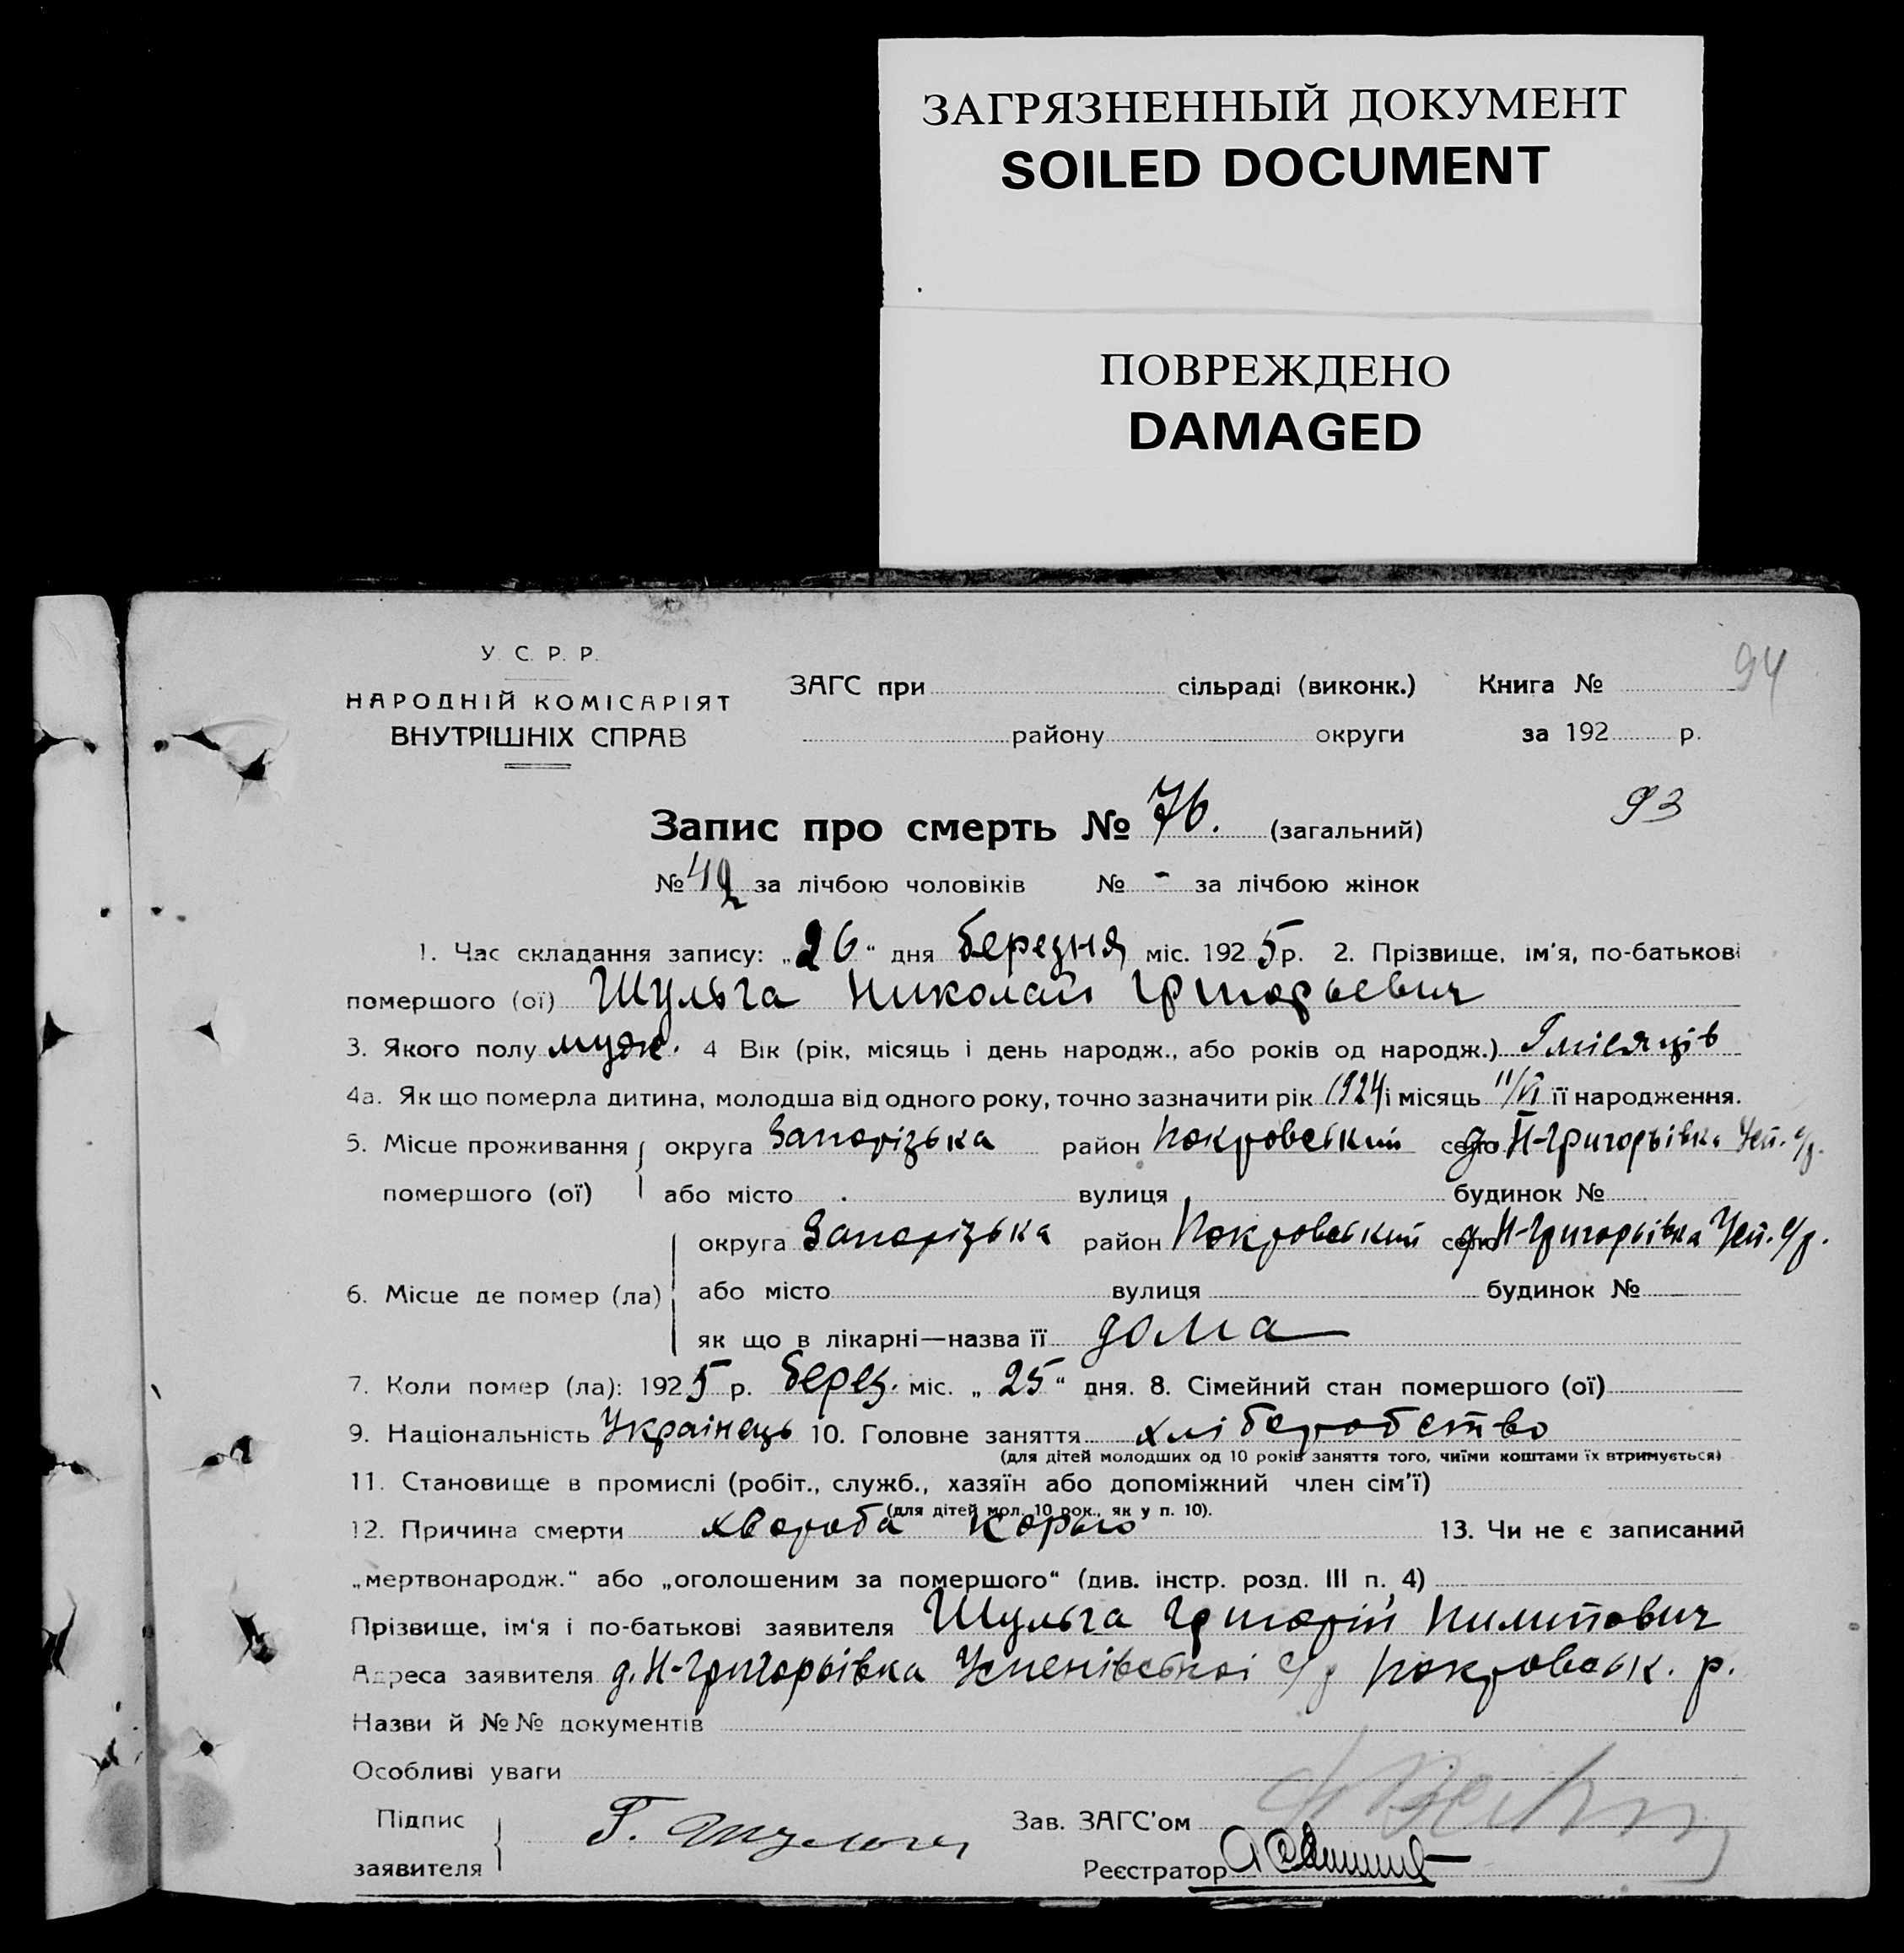 ЗАГРЯЗНЕННЫЙ ДОКУМЕНТ
SOILED DOCUMENT
ПОВРЕЖДЕНО
DAMAGED
У. С. Р. Р.
НАРОДНІЙ КОМІСАРІЯТ
ВНУТРІШНІХ СПРАВ
ЗАГС при сільраді (виконк.) Книга № 94
району округи за 192 р.
93
Запис про смерть № 76. (загальний)
№ 42 за лічбою чоловіків № - за лічбою жінок
1. Час складання запису: „26“ дня березня міс. 1925 р. 2. Прізвище, ім'я, по-батькові
помершого (ої) Шульга Николай Григорьевич
3. Якого полу муж. 4 Вік (рік, місяць і день народж., або років од народж.) місяців
4а. Як що померла дитина, молодша від одного року, точно зазначити рік 1924 і місяць 11/VI її народження.
5. Місце проживання округа Запорізька район Покровський село д. Н-Григорьівка Усп. с/р.
помершого (ої) або місто вулиця будинок №
округа Запорізька район Покровський село д. Н-Григорьівка Усп. с/р.
6. Місце де помер (ла) або місто вулиця будинок №
як що в лікарні—назва її дома
7. Коли помер (ла): 1925 р. берез. міс. „25“ дня. 8. Сімейний стан помершого (ої)
9. Національність Украінець 10. Головне заняття хліборобство
(для дітей молодших од 10 років заняття того, чиїми коштами їх втримується)
11. Становище в промислі (робіт., служб., хазяїн або допоміжний член сім'ї)
(для дітей мол. 10 рок., як у п. 10).
12. Причина смерти хвороба корью 13. Чи не є записаний
„мертвонародж.“ або „оголошеним за помершого“ (див. інстр. розд. III п. 4)
Прізвище, ім'я і по-батькові заявителя Шульга Григорій Пилипович
Адреса заявителя д. Н-Григорьівка Успенівськоі с/р Покровськ. р.
Назви й №№ документів
Особливі уваги
Підпис
заявителя Г. Шульга
Зав. ЗАГС'ом
Реєстратор